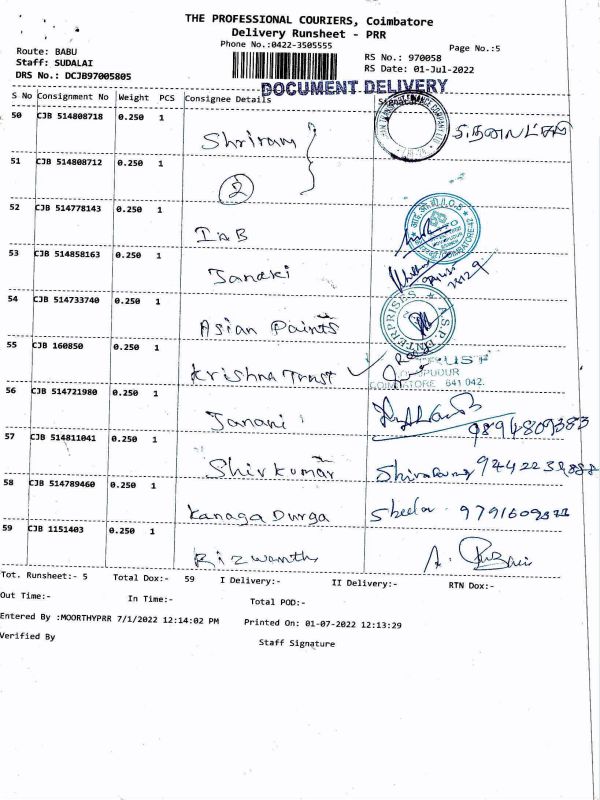 THE PROFESSIONAL COURIERS, Coimbatore
Delivery Runsheet - PRR
Phone No.:0422-3505555
Page No.:5
Route: BABU
RS No.: 970058
Staff: SUDALAI
RS Date: 01-Jul-2022
DRS No.: DCJB97005805
DOCUMENT DELIVERY
S No Consignment No Weight PCS Consignee Details Signature
50 CJB 514808718 0.250 1
Shriram
51 CJB 514808712 0.250 1
2
52 CJB 514778143 0.250 1
53 CJB 514858163 0.250 1
Janaki
54 CJB 514733740 0.250 1
Asian Paints
A.S.P. ENTERPRISES
55 CJB 160850 0.250 1
Krishna Trust
TRUST
COIMBATORE 641 042.
56 CJB 514721980 0.250 1
Janani
9894809383
57 CJB 514811041 0.250 1
Shivkumar
58 CJB 514789460 0.250 1
Kanaga Durga Sheela
59 CJB 1151403 0.250 1
Rizwanth
Tot. Runsheet:- 5 Total Dox:- 59 I Delivery:- II Delivery:- RTN Dox:-
Out Time:- In Time:- Total POD:-
Entered By :MOORTHYPRR 7/1/2022 12:14:02 PM Printed On: 01-07-2022 12:13:29
Verified By Staff Signature